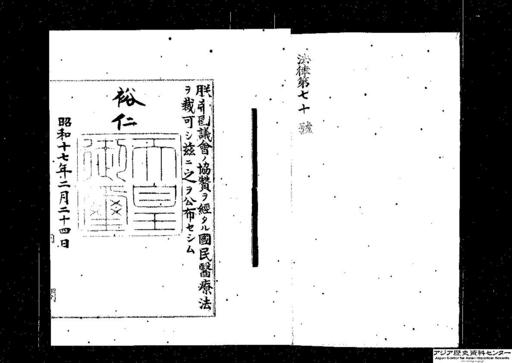 法律第七十號
朕帝國議會ノ協贊ヲ經タル國民醫療法
ヲ裁可シ茲ニ之ヲ公布セシム
裕仁
天皇
御璽
昭和十七年二月二十四日
アジア歴史資料センター
Japan Center for Asian Historical Records